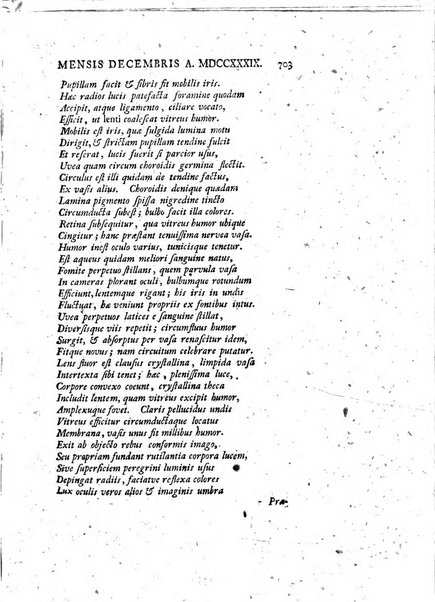 MENSIS DECEMBRIS A. MDCCXXXIX. 703
Pupillam facit & fibris fit mobilis iris.
Hæc radios lucis patefacta foramine quodam
Accipit, atque ligamento, ciliare vocato,
Efficit, ut lenti coalescat vitreus humor.
Mobilis est iris, quæ fulgida lumina motu
Dirigit, & strictam pupillam tendine fulcit
Et reserat, lucis fuerit si parcior usus,
Uvea quam circum choroidis germina flectit.
Circulus est illi quidam de tendine factus,
Ex vasis alius. Choroidis denique quadam
Lamina pigmento spissa nigredine tincto
Circumducta subest; bulbo facit illa colores.
Retina subsequitur, qua vitreus humor ubique
Cingitur; hanc præstant tenuissima nervea vasa.
Humor inest oculo varius, tunicisque tenetur.
Est aqueus quidam meliori sanguine natus,
Fomite perpetuo stillans, quem parvula vasa
In cameras plorant oculi, bulbumque rotundum
Efficiunt, lentemque rigant; his illis in undis
Fluctuat, hæ veniunt propriis ex fontibus intus.
Uvea perpetuos latices e sanguine stillat,
Diversisque viis repetit; circumfluus humor
Surgit, & absorptus per vasa renascitur idem,
Fitque novus; nam circuitum celebrare putatur.
Lens fluor est clausus crystallina, grandia vasa
Intertexta sibi tenet; hæc, plenissima luce,
Corpore convexo coeunt, crystallina theca
Includit lentem, quam vitreus excipit humor,
Amplexuque fovet. Claris pellucidus undis
Vitreus efficitur circumductusque locatus
Membrana, vasis unus fit millibus humor.
Exit ab objecto rebus conformis imago,
Seu propriam fundant rutilantia corpora lucem,
Sive superficiem peregrini luminis usus
Depingat radiis, faciatve reflexa colores
Lux oculis veros alios & imaginis umbra
Præ-